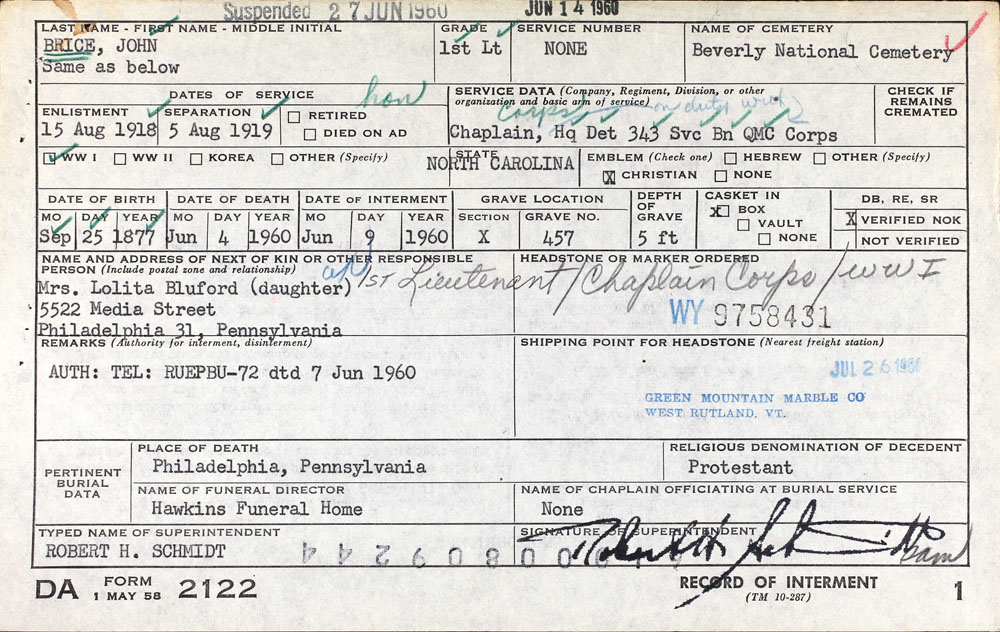 Suspended 27 JUN 1960
JUN 14 1960
LAST NAME - FIRST NAME - MIDDLE INITIAL
BRICE, JOHN
Same as below
GRADE
1st Lt
SERVICE NUMBER
NONE
NAME OF CEMETERY
Beverly National Cemetery
DATES OF SERVICE
hon
ENLISTMENT
15 Aug 1918
SEPARATION
5 Aug 1919
RETIRED
DIED ON AD
SERVICE DATA (Company, Regiment, Division, or other
organization and basic arm of service)
Corps on duty with
Chaplain, Hq Det 343 Svc Bn QMC Corps
CHECK IF
REMAINS
CREMATED
WW I
WW II
KOREA
OTHER (Specify)
STATE
NORTH CAROLINA
EMBLEM (Check one)
HEBREW
OTHER (Specify)
X CHRISTIAN
NONE
DATE OF BIRTH
MO DAY YEAR
Sep 25 1877
DATE OF DEATH
MO DAY YEAR
Jun 4 1960
DATE OF INTERMENT
MO DAY YEAR
Jun 9 1960
GRAVE LOCATION
SECTION GRAVE NO.
X 457
DEPTH
OF
GRAVE
5 ft
CASKET IN
X BOX
VAULT
NONE
DB, RE, SR
X VERIFIED NOK
NOT VERIFIED
NAME AND ADDRESS OF NEXT OF KIN OR OTHER RESPONSIBLE
PERSON (Include postal zone and relationship)
Mrs. Lolita Bluford (daughter)
5522 Media Street
Philadelphia 31, Pennsylvania
HEADSTONE OR MARKER ORDERED
1ST Lieutenant / Chaplain Corps / WW I
WY 9758431
REMARKS (Authority for interment, disinterment)
AUTH: TEL: RUEPBU-72 dtd 7 Jun 1960
SHIPPING POINT FOR HEADSTONE (Nearest freight station)
JUL 26 1960
GREEN MOUNTAIN MARBLE CO
WEST RUTLAND, VT.
PERTINENT
BURIAL
DATA
PLACE OF DEATH
Philadelphia, Pennsylvania
RELIGIOUS DENOMINATION OF DECEDENT
Protestant
NAME OF FUNERAL DIRECTOR
Hawkins Funeral Home
NAME OF CHAPLAIN OFFICIATING AT BURIAL SERVICE
None
TYPED NAME OF SUPERINTENDENT
ROBERT H. SCHMIDT
SIGNATURE OF SUPERINTENDENT
Robert H Schmidt
DA FORM 2122
1 MAY 58
RECORD OF INTERMENT
(TM 10-287)
1